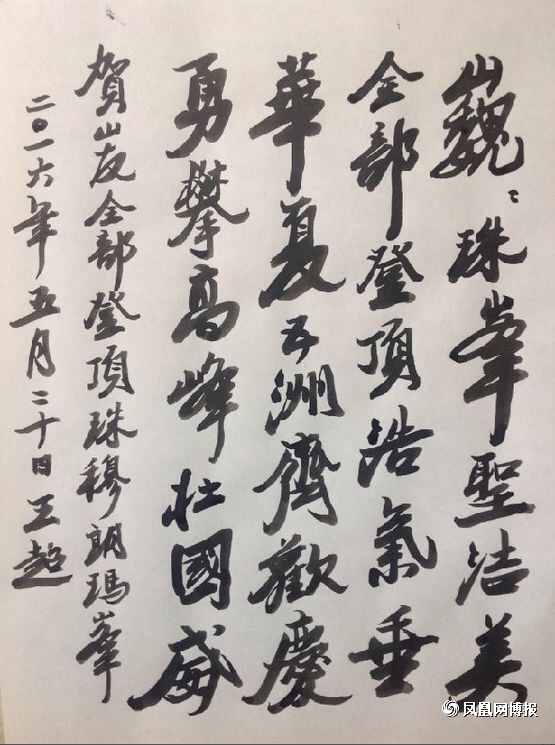 巍〻珠峯聖洁美
全部登頂浩氣垂
華夏五洲齊歡慶
勇攀高峰壯國威
賀山友全部登頂珠穆朗瑪峯
二〇一六年五月二十日王超
凤凰网博报